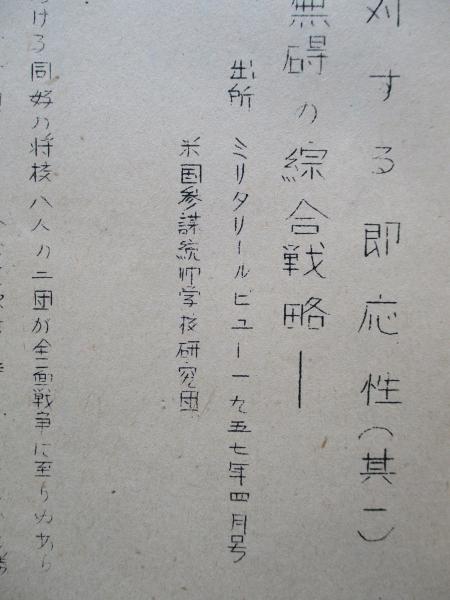 対する即応性(其一)
無碍の綜合戦略―
出所 ミリタリールビュー一九五七年四月号
米国参謀統帅学校研究団
ける同好の将校八人の二団が全面戦争に至らぬあら